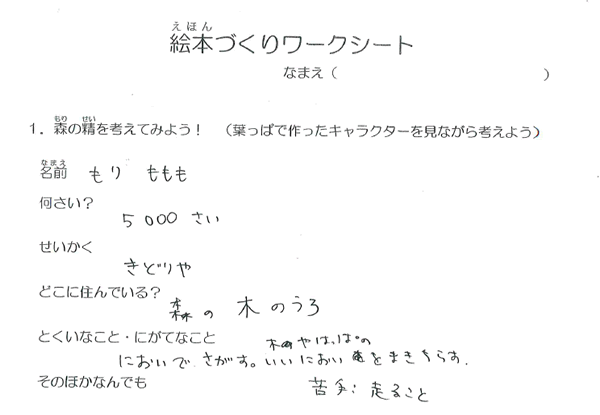 えほん
絵本づくりワークシート
なまえ（　　　　　　　　　　）
もり　せい
1．森の精を考えてみよう！　（葉っぱで作ったキャラクターを見ながら考えよう）
なまえ
名前　もり　ももも
何さい？
5000 さい
せいかく
きどりや
どこに住んでいる？
森の 木のうろ
とくいなこと・にがてなこと
木の やはっぱの
においで さがす。いいにおい をまきちらす.
そのほかなんでも
苦手: 走ること